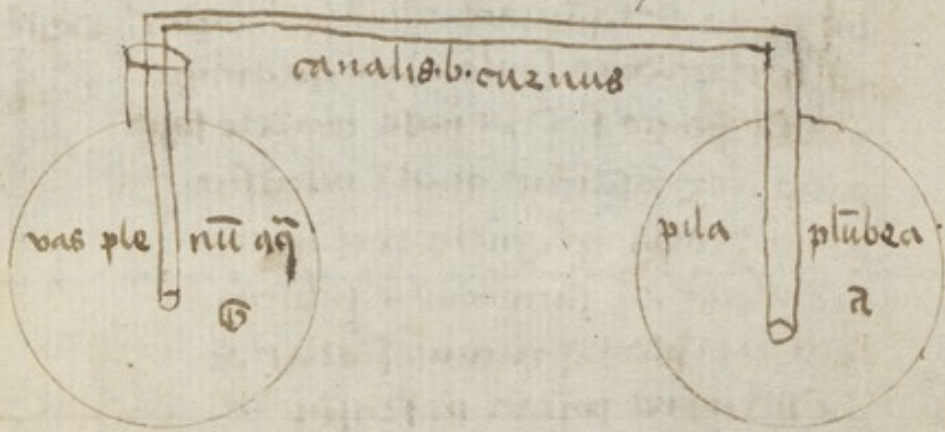 canalis·b·curuus
vas ple nū pila plūbea
G a